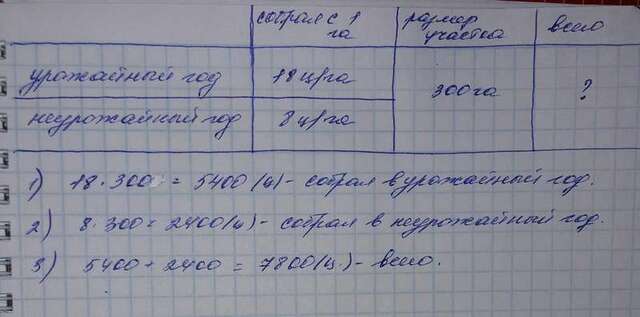 собрал с 1 га размер участка всего
урожайный год 18 ц/га 300 га ?
неурожайный год 8 ц/га
1) 18 · 300 = 5400 (ц) - собрал в урожайный год.
2) 8 · 300 = 2400 (ц) - собрал в неурожайный год.
3) 5400 + 2400 = 7800 (ц) - всего.